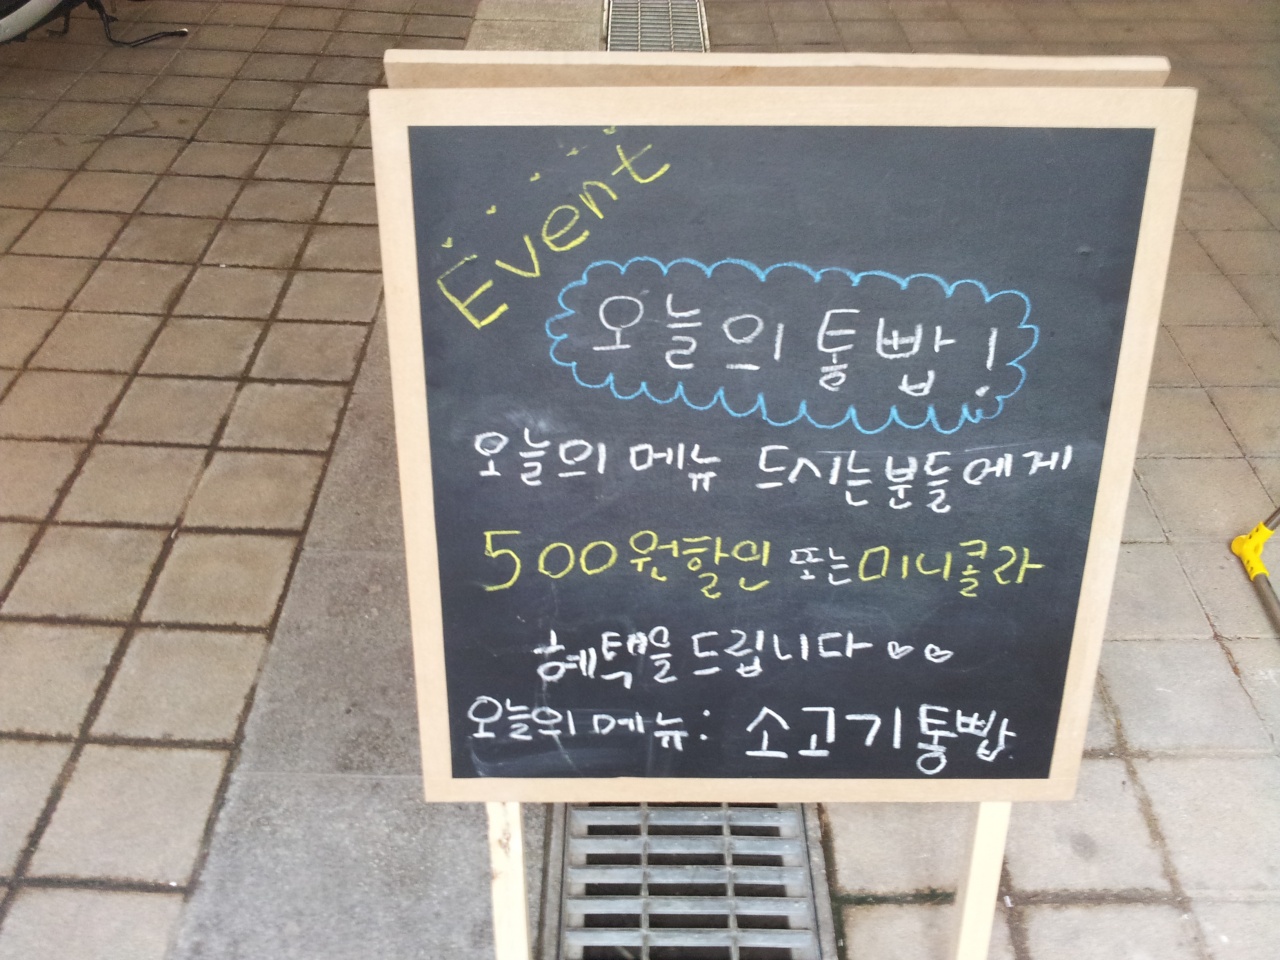 Event
오늘의 통빱!
오늘의 메뉴 드시는분들에게
500원할인 또는미니콜라
혜택을 드립니다♡♡
오늘의메뉴: 소고기통빱.